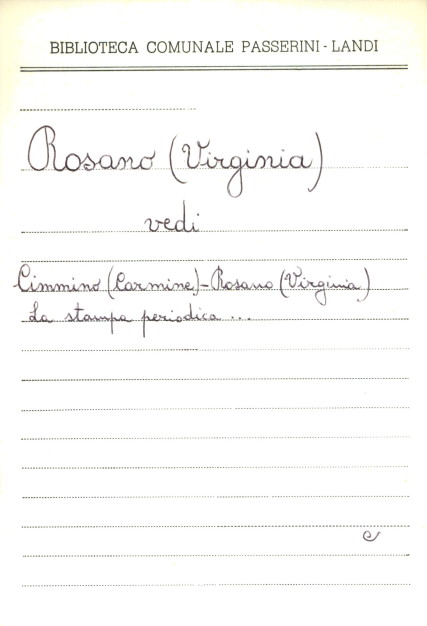 BIBLIOTECA COMUNALE PASSERINI - LANDI
Rosano (Virginia)
vedi
Cimmino (Carmine) - Rosano (Virginia)
La stampa periodica ...
e